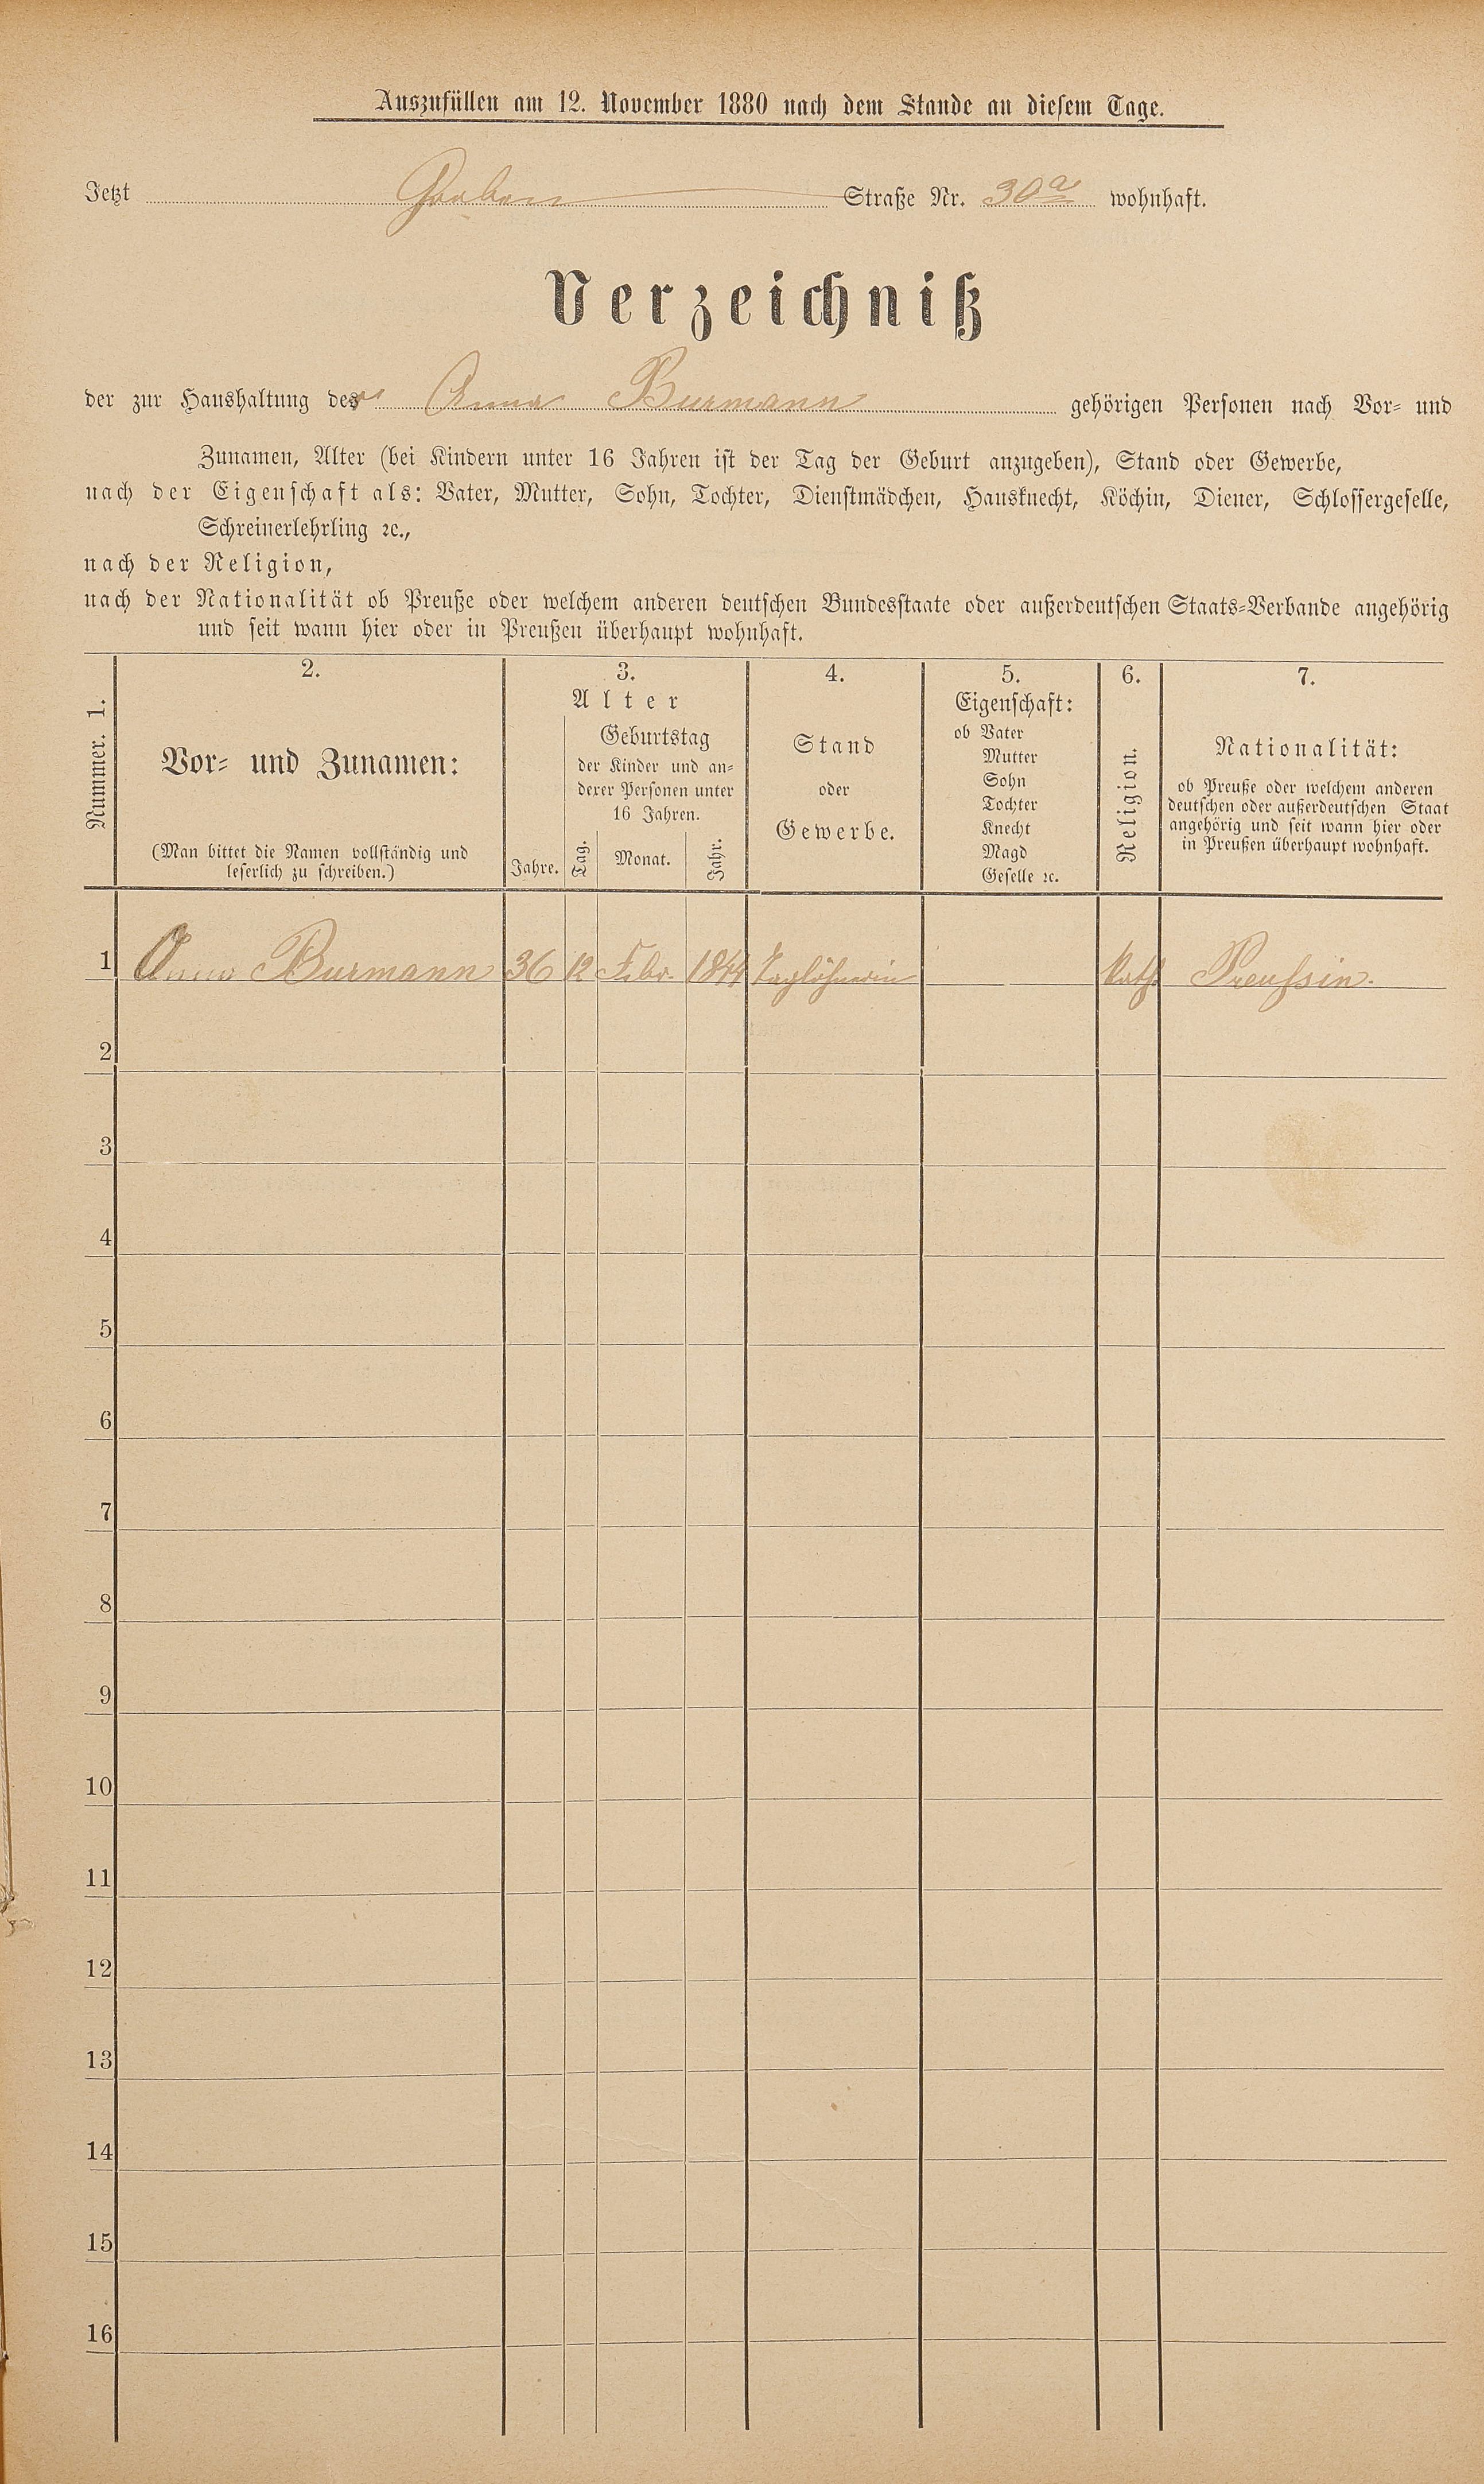 Auszufüllen am 12. November 1880 nach dem Stande an diesem Tage.
Jetzt Graben Straße Nr. 30a wohnhaft.
Verzeichniß
der zur Haushaltung der Anna Burmann gehörigen Personen nach Vor- und
Zunamen, Alter (bei Kindern unter 16 Jahren ist der Tag der Geburt anzugeben), Stand oder Gewerbe,
nach der Eigenschaft als: Vater, Mutter, Sohn, Tochter, Dienstmädchen, Hausknecht, Köchin, Diener, Schlossergeselle,
Schreinerlehrling ꝛc.,
nach der Religion,
nach der Nationalität ob Preuße oder welchem anderen deutschen Bundesstaate oder außerdeutschen Staats-Verbande angehörig
und seit wann hier oder in Preußen überhaupt wohnhaft.
Nummer. 1.
2.
Vor- und Zunamen:
(Man bittet die Namen vollständig und
leserlich zu schreiben.)
3.
Alter
Jahre.
Geburtstag
der Kinder und an-
derer Personen unter
16 Jahren.
Tag.
Monat.
Jahr.
4.
Stand
oder
Gewerbe.
5.
Eigenschaft:
ob Vater
Mutter
Sohn
Tochter
Knecht
Magd
Geselle ꝛc.
6.
Religion.
7.
Nationalität:
ob Preuße oder welchem anderen
deutschen oder außerdeutschen Staat
angehörig und seit wann hier oder
in Preußen überhaupt wohnhaft.
1 Anna Burmann 36 12 Febr. 1844 Taglöhnerin Kath. Preußsin.
2
3
4
5
6
7
8
9
10
11
12
13
14
15
16